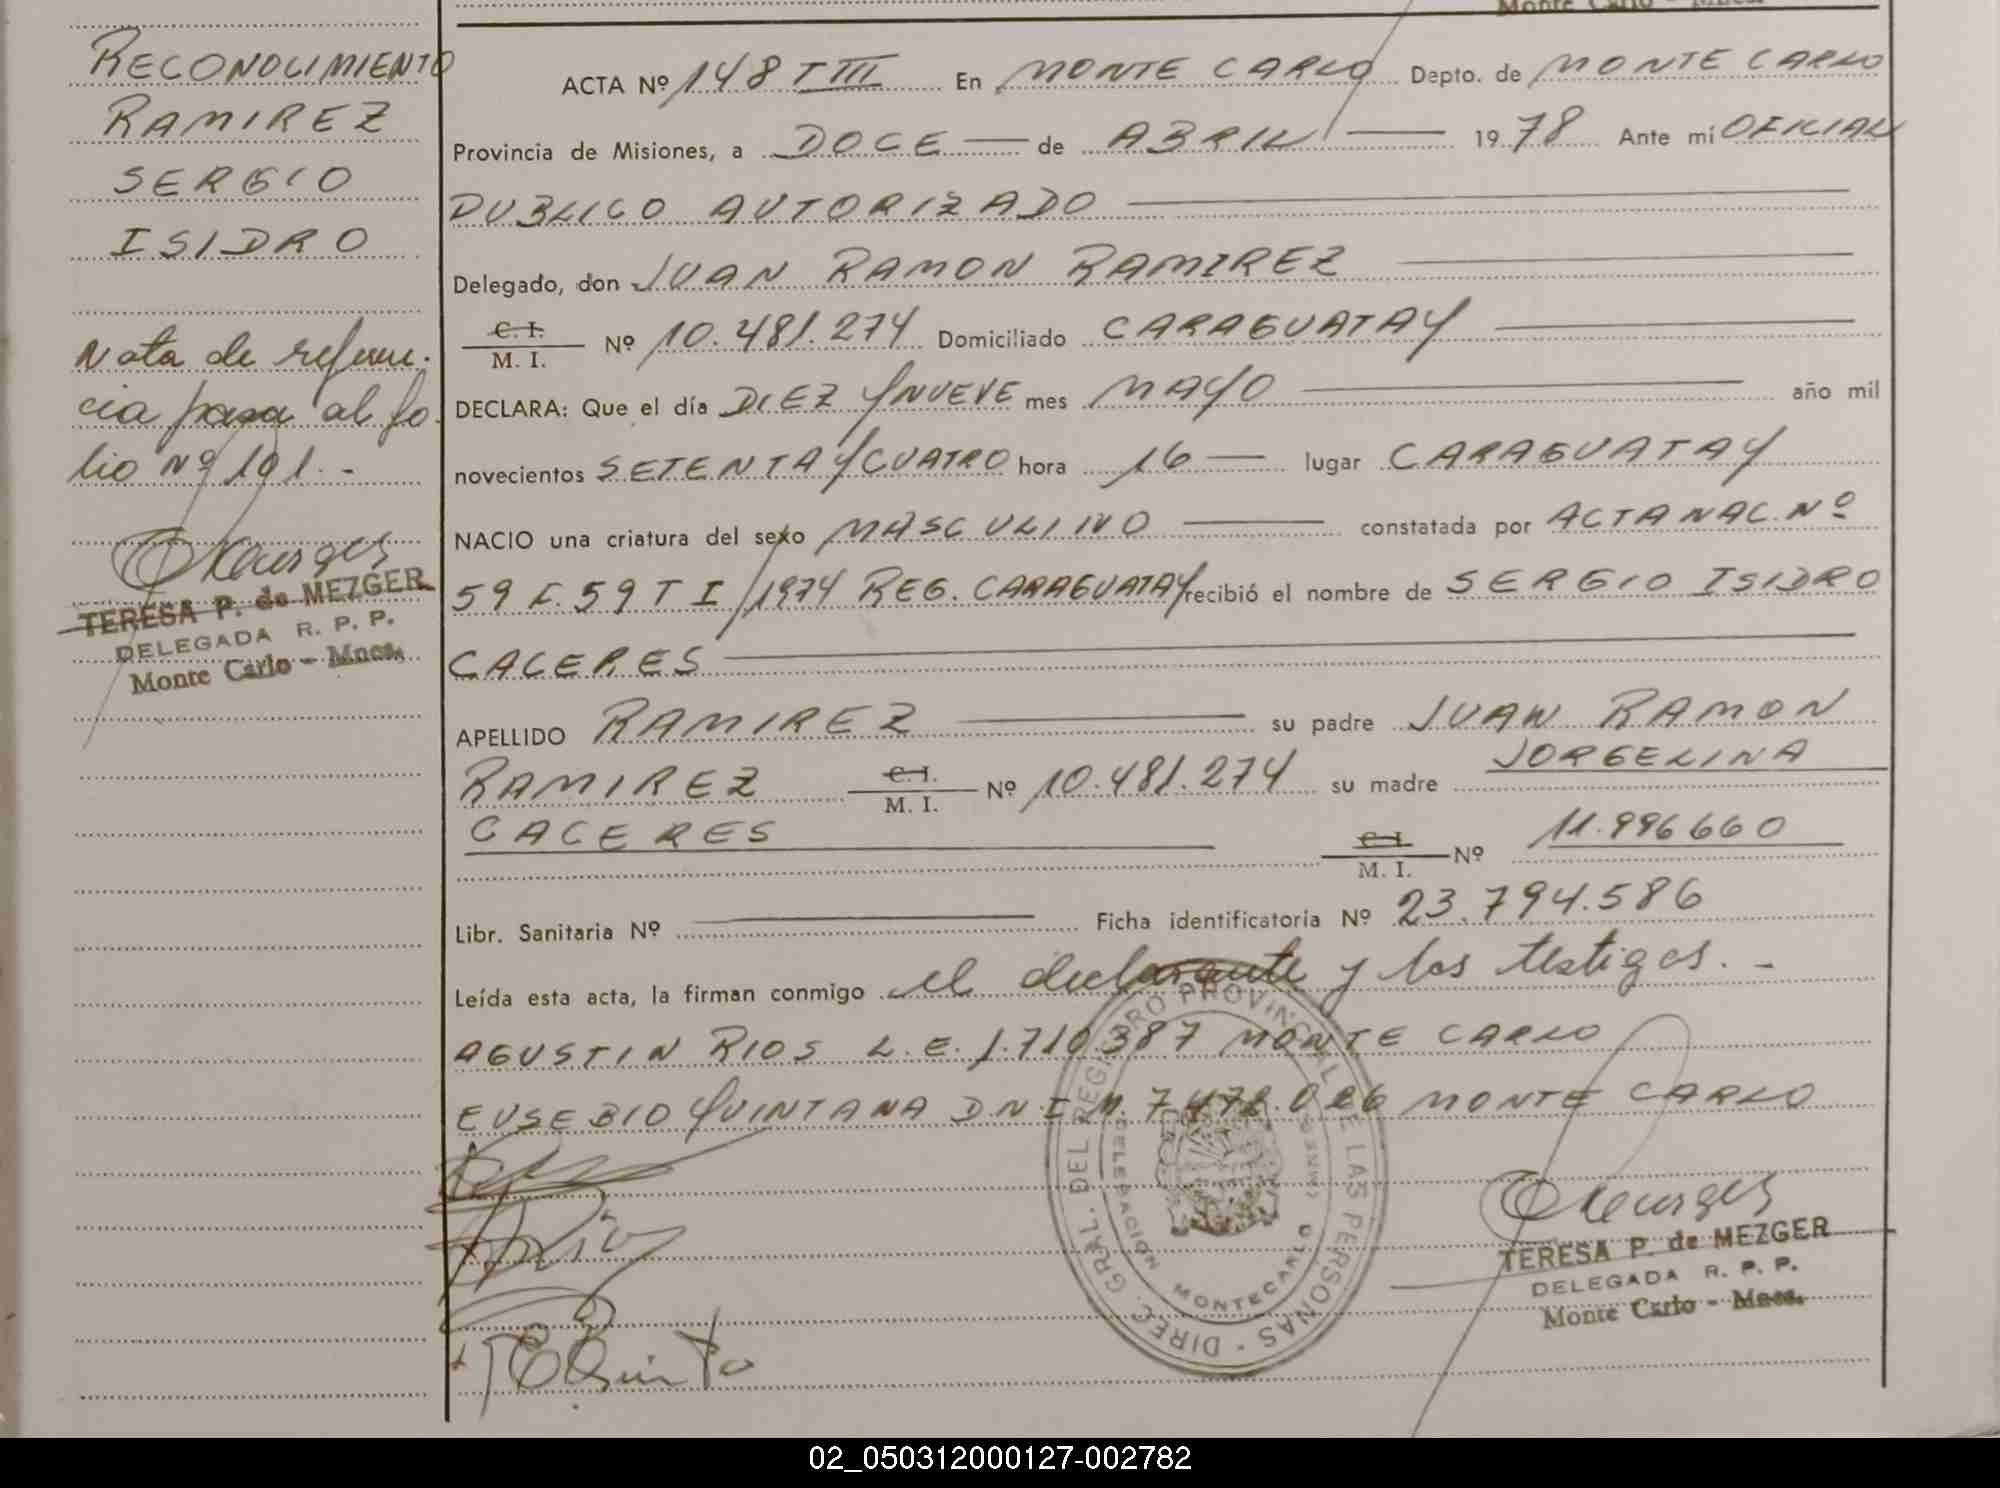 Monte Carlo - Mnes.
RECONOCIMIENTO
RAMIREZ
SERGIO
ISIDRO
Nota de referen-
cia pasa al fo-
lio Nº 191.-
TERESA P. de MEZGER
DELEGADA R. P. P.
Monte Carlo - Mnes.
ACTA Nº 148 T III En MONTE CARLO Depto. de MONTE CARLO
Provincia de Misiones, a DOCE — de ABRIL — 1978 Ante mí OFICIAL
PUBLICO AUTORIZADO
Delegado, don JUAN RAMON RAMIREZ
C. I.
M. I. Nº 10.481.274 Domiciliado CARAGUATAY
DECLARA: Que el día DIEZ Y NUEVE mes MAYO año mil
novecientos SETENTA Y CUATRO hora 16 — lugar CARAGUATAY
NACIO una criatura del sexo MASCULINO constatada por ACTA NAC. Nº
59 F. 59 T I /1974 REG. CARAGUATAY recibió el nombre de SERGIO ISIDRO
CACERES
APELLIDO RAMIREZ su padre JUAN RAMON
RAMIREZ C. I. M. I. Nº 10.481.274 su madre JORGELINA
CACERES C. I. M. I. Nº 11.996660
Libr. Sanitaria Nº Ficha identificatoria Nº 23.794.586
Leída esta acta, la firman conmigo el declarante y los testigos. -
AGUSTIN RIOS L.E. 1.710387 MONTE CARLO
EUSEBIO QUINTANA D.N.I M. 7.472.026 MONTE CARLO
DIREC. GRAL. DEL REGISTRO PROVINCIAL DE LAS PERSONAS
DELEGACION MONTECARLO
TERESA P. de MEZGER
DELEGADA R. P. P.
Monte Carlo - Mnes.
02_050312000127-002782